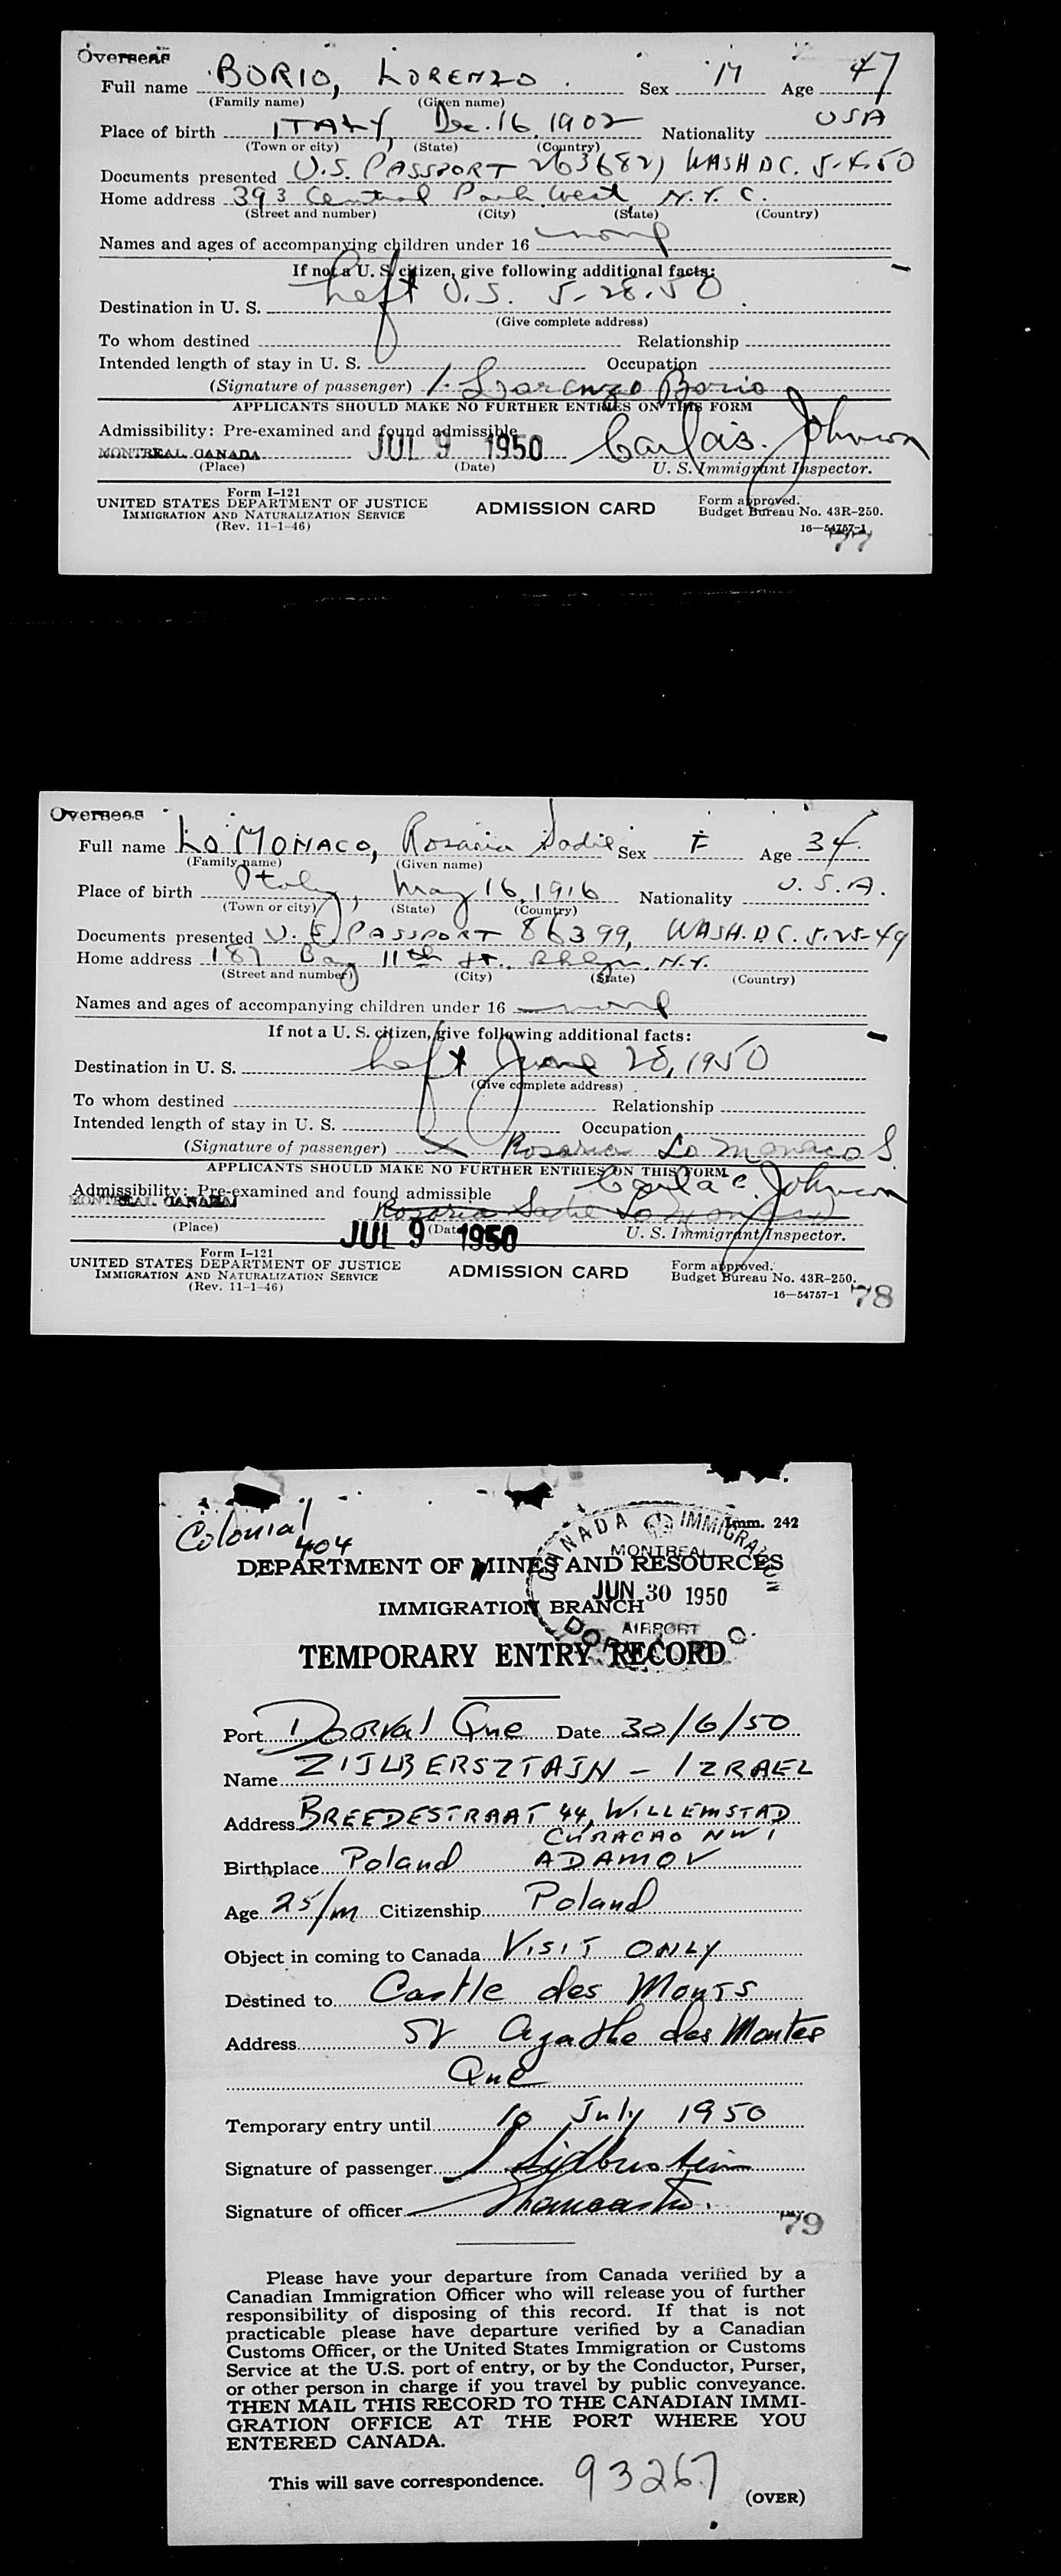 Overseas
Full name BORIO, LORENZO Sex M Age 47
(Family name) (Given name)
Place of birth ITALY, Dec. 16, 1902 Nationality USA
(Town or city) (State) (Country)
Documents presented U.S. PASSPORT WASH DC. 5-4-50
Home address 393 Central Park West, N.Y.C.
(Street and number) (City) (State) (Country)
Names and ages of accompanying children under 16 none
If not a U. S. citizen, give following additional facts:
Destination in U. S. Left U.S. 5-28-50
(Give complete address)
To whom destined Relationship
Intended length of stay in U. S. Occupation
(Signature of passenger) Lorenzo Borio
APPLICANTS SHOULD MAKE NO FURTHER ENTRIES ON THIS FORM
Admissibility: Pre-examined and found admissible
MONTREAL CANADA JUL 9 1950 Johnson
(Place) (Date) U. S. Immigrant Inspector.
Form I-121
UNITED STATES DEPARTMENT OF JUSTICE
IMMIGRATION AND NATURALIZATION SERVICE
(Rev. 11-1-46)
ADMISSION CARD
Form approved.
Budget Bureau No. 43R-250.
16—54757-1
77
Overseas
Full name LO MONACO, Rosaria Sadie Sex F Age 34
(Family name) (Given name)
Place of birth Italy, May 16, 1916 Nationality U.S.A.
(Town or city) (State) (Country)
Documents presented U.S. PASSPORT 86399, WASH. D.C. 5-25-49
Home address 187 Bay 11th St., Bklyn, N.Y.
(Street and number) (City) (State) (Country)
Names and ages of accompanying children under 16 none
If not a U. S. citizen, give following additional facts:
Destination in U. S. Left June 28, 1950
(Give complete address)
To whom destined Relationship
Intended length of stay in U. S. Occupation
(Signature of passenger) X Rosaria Lo Monaco S.
APPLICANTS SHOULD MAKE NO FURTHER ENTRIES ON THIS FORM
Carla C. Johnson
Admissibility: Pre-examined and found admissible
MONTREAL CANADA Rosaria Sadie Lo Monaco
(Place) JUL 9 1950 (Date) U. S. Immigrant Inspector.
Form I-121
UNITED STATES DEPARTMENT OF JUSTICE
IMMIGRATION AND NATURALIZATION SERVICE
(Rev. 11-1-46)
ADMISSION CARD
Form approved.
Budget Bureau No. 43R-250.
16—54757-1
78
Colonial
404
Imm. 242
CANADA IMMIGRATION
MONTREAL
JUN 30 1950
AIRPORT
DEPARTMENT OF MINES AND RESOURCES
IMMIGRATION BRANCH
TEMPORARY ENTRY RECORD
Port Dorval Que Date 30/6/50
Name ZIJLBERSZTAJN - IZRAEL
Address BREEDESTRAAT 44, WILLEMSTAD
CURACAO NWI
Birthplace Poland ADAMOV
Age 25/m Citizenship Poland
Object in coming to Canada VISIT ONLY
Destined to Castle des Monts
Address St Agathe des Montes
Que
Temporary entry until 10 July 1950
Signature of passenger
Signature of officer
79
Please have your departure from Canada verified by a
Canadian Immigration Officer who will release you of further
responsibility of disposing of this record. If that is not
practicable please have departure verified by a Canadian
Customs Officer, or the United States Immigration or Customs
Service at the U.S. port of entry, or by the Conductor, Purser,
or other person in charge if you travel by public conveyance.
THEN MAIL THIS RECORD TO THE CANADIAN IMMI-
GRATION OFFICE AT THE PORT WHERE YOU
ENTERED CANADA.
This will save correspondence. 93267
(OVER)